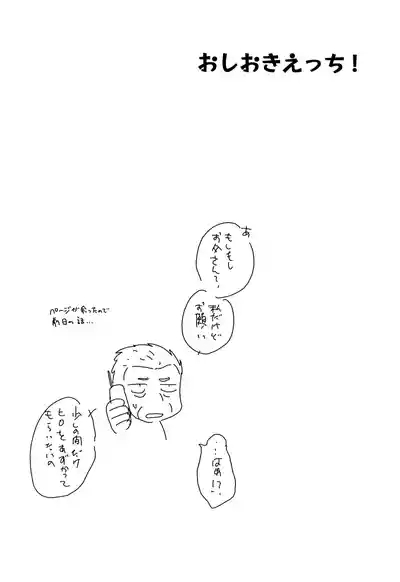 おしおきえっち！
あ
もしもし
お父さん？
私だけど
お願い
ページが余ったので
前日の話…
少しの間だけ
ヒロをあずかって
もらいたいの
…はぁ!?